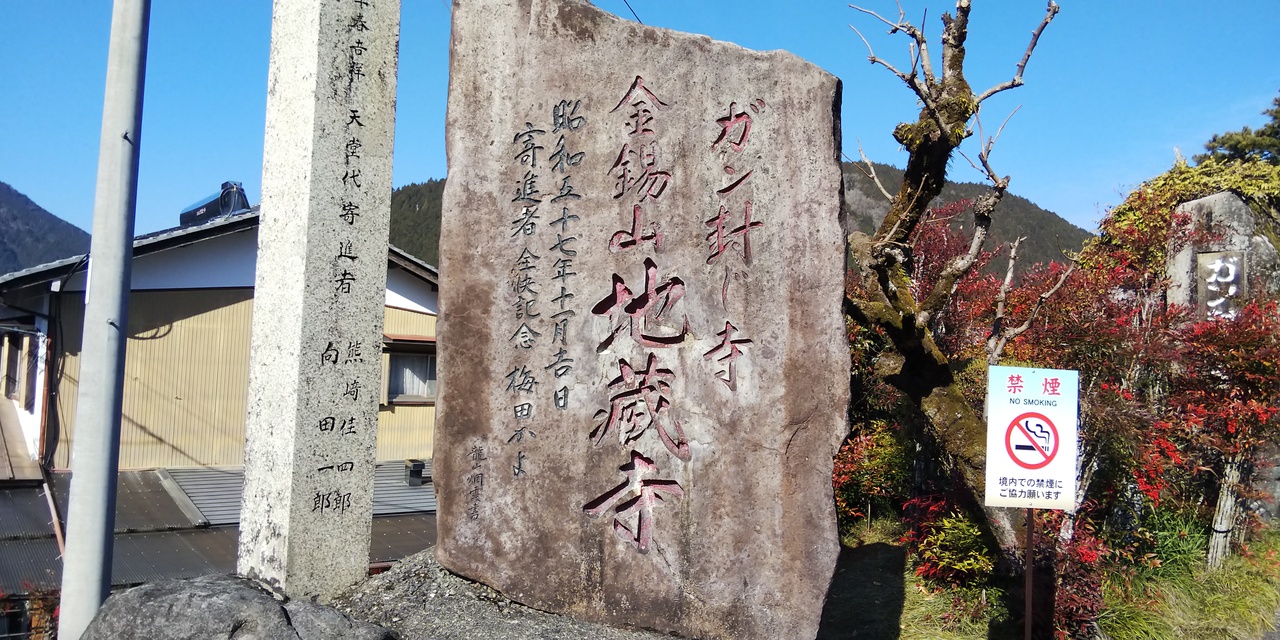 ガン封じ寺
金錫山地蔵寺
昭和五十七年十一月吉日
寄進者 全快記念 梅田かよ
春吉祥 天堂代寄進者 熊﨑佳四郎
向田一郎
禁煙
NO SMOKING
境内での禁煙に
ご協力願います
ガン